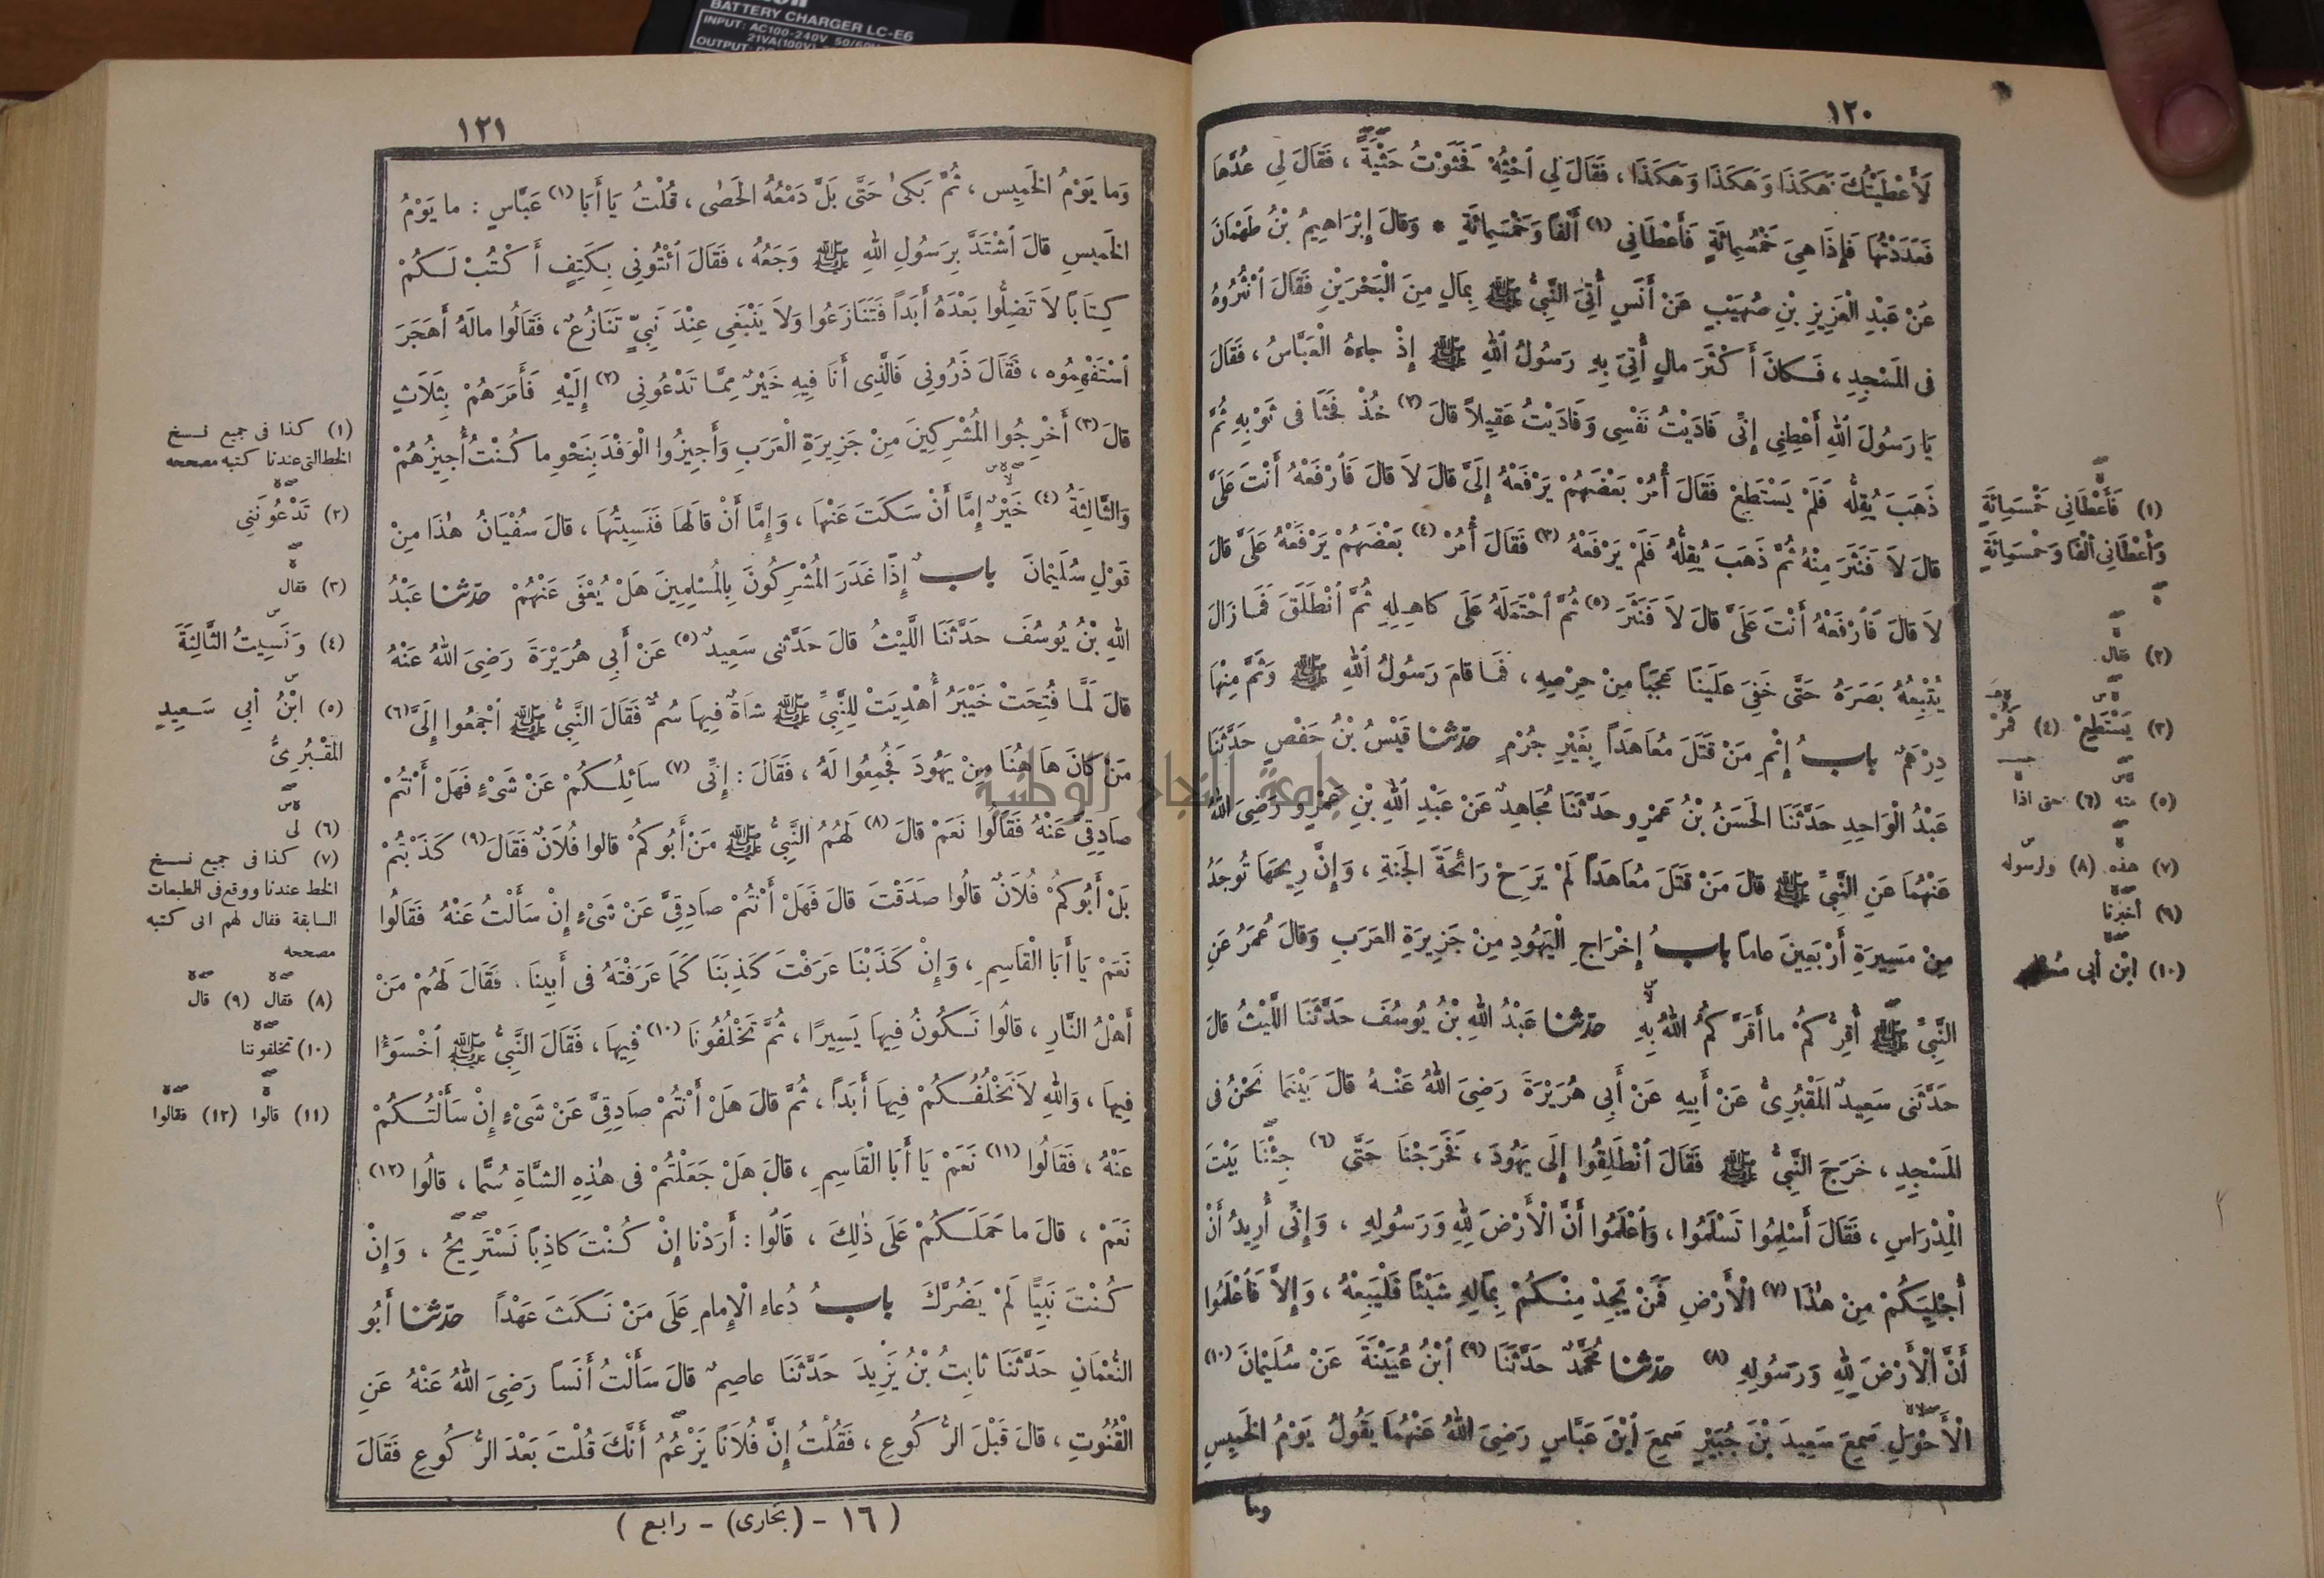 BATTERY CHARGER LC-E6
INPUT: AC100-240V 50/60H
21VA(100V)
OUTPUT: DC
١٢٠
لَأَعْطَيْتُكَ هَكَذَا وَهَكَذَا وَهَكَذَا ، فَقَالَ لِي ٱحْثِهْ فَحَثَوْتُ حَثْيَةً ، فَقَالَ لِي عُدَّهَا
فَعَدَدْتُهَا فَإِذَا هِيَ خَمْسُمِائَةٍ فَأَعْطَانِي (١) أَلْفًا وَخَمْسَمِائَةٍ * وَقَالَ إِبْرَاهِيمُ بْنُ طَهْمَانَ
عَنْ عَبْدِ الْعَزِيزِ بْنِ صُهَيْبٍ عَنْ أَنَسٍ أُتِيَ النَّبِيُّ ﷺ بِمَالٍ مِنَ الْبَحْرَيْنِ فَقَالَ ٱنْثُرُوهُ
فِى الْمَسْجِدِ ، فَكَانَ أَكْثَرَ مَالٍ أُتِيَ بِهِ رَسُولُ ٱللهِ ﷺ إِذْ جَاءَهُ الْعَبَّاسُ ، فَقَالَ
يَا رَسُولَ ٱللهِ أَعْطِنِى إِنِّى فَادَيْتُ نَفْسِى وَفَادَيْتُ عَقِيلاً قَالَ (٢) خُذْ فَحَثَا فِى ثَوْبِهِ ثُمَّ
ذَهَبَ يُقِلُّهُ فَلَمْ يَسْتَطِعْ فَقَالَ أُمُرْ بَعْضَهُمْ يَرْفَعْهُ إِلَىَّ قَالَ لاَ قَالَ فَٱرْفَعْهُ أَنْتَ عَلَىَّ
قَالَ لاَ فَنَثَرَ مِنْهُ ثُمَّ ذَهَبَ يُقِلُّهُ فَلَمْ يَرْفَعْهُ (٣) فَقَالَ أُمُرْ (٤) بَعْضَهُمْ يَرْفَعْهُ عَلَىَّ قَالَ
لاَ قَالَ فَٱرْفَعْهُ أَنْتَ عَلَىَّ قَالَ لاَ فَنَثَرَ (٥) ثُمَّ ٱحْتَمَلَهُ عَلَى كَاهِلِهِ ثُمَّ ٱنْطَلَقَ فَمَا زَالَ
يُتْبِعُهُ بَصَرَهُ حَتَّى خَفِيَ عَلَيْنَا عَجَبًا مِنْ حِرْصِهِ ، فَمَا قَامَ رَسُولُ ٱللهِ ﷺ وَثَمَّ مِنْهَا
دِرْهَمٌ بابُ إِثْمِ مَنْ قَتَلَ مُعَاهَدًا بِغَيْرِ جُرْمٍ حدّثنا قَيْسُ بْنُ حَفْصٍ حَدَّثَنَا
عَبْدُ الْوَاحِدِ حَدَّثَنَا الْحَسَنُ بْنُ عَمْرٍو حَدَّثَنَا مُجَاهِدٌ عَنْ عَبْدِ ٱللهِ بْنِ عَمْرٍو رَضِيَ ٱللهُ
عَنْهُمَا عَنِ النَّبِيِّ ﷺ قَالَ مَنْ قَتَلَ مُعَاهَدًا لَمْ يَرَحْ رَائِحَةَ الْجَنَّةِ ، وَإِنَّ رِيحَهَا تُوجَدُ
مِنْ مَسِيرَةِ أَرْبَعِينَ عَامًا بابُ إِخْرَاجِ الْيَهُودِ مِنْ جَزِيرَةِ الْعَرَبِ وَقَالَ عُمَرُ عَنِ
النَّبِيِّ ﷺ أُقِرُّكُمْ مَا أَقَرَّكُمُ اللهُ بِهِ حدّثنا عَبْدُ اللهِ بْنُ يُوسُفَ حَدَّثَنَا اللَّيْثُ قَالَ
حَدَّثَنِى سَعِيدٌ الْمَقْبُرِىُّ عَنْ أَبِيهِ عَنْ أَبِي هُرَيْرَةَ رَضِيَ اللهُ عَنْهُ قَالَ بَيْنَمَا نَحْنُ فِى
الْمَسْجِدِ ، خَرَجَ النَّبِيُّ ﷺ فَقَالَ ٱنْطَلِقُوا إِلَى يَهُودَ ، فَخَرَجْنَا حَتَّى (٦) جِئْنَا بَيْتَ
الْمِدْرَاسِ ، فَقَالَ أَسْلِمُوا تَسْلَمُوا ، وَٱعْلَمُوا أَنَّ الْأَرْضَ لِلهِ وَرَسُولِهِ ، وَإِنِّى أُرِيدُ أَنْ
أُجْلِيَكُمْ مِنْ هٰذَا (٧) الْأَرْضِ فَمَنْ يَجِدْ مِنْكُمْ بِمَالِهِ شَيْئًا فَلْيَبِعْهُ ، وَإِلاَّ فَٱعْلَمُوا
أَنَّ الْأَرْضَ لِلهِ وَرَسُولِهِ (٨) حدّثنا مُحَمَّدٌ حَدَّثَنَا (٩) ٱبْنُ عُيَيْنَةَ عَنْ سُلَيْمَانَ (١٠)
الْأَحْوَلِ سَمِعَ سَعِيدَ بْنَ جُبَيْرٍ سَمِعَ ٱبْنَ عَبَّاسٍ رَضِيَ اللهُ عَنْهُمَا يَقُولُ يَوْمُ الْخَمِيسِ
وما
(١) فَأَعْطَانِي خَمْسَمِائَةٍ
وَأَعْطَانِي أَلْفًا وَخَمْسَمِائَةٍ
(٢) فقال
(٣) يَسْتَطِعْ (٤) فَمُرْ
(٥) منه (٦) حتى اذا
(٧) هذه (٨) ولرسوله
(٩) أخبرنا
(١٠) ابْنِ أبى
١٢١
وَمَا يَوْمُ الْخَمِيسِ ، ثُمَّ بَكَى حَتَّى بَلَّ دَمْعُهُ الْحَصَى ، قُلْتُ يَا أَبَا (١) عَبَّاسٍ : مَا يَوْمُ
الْخَمِيسِ قَالَ ٱشْتَدَّ بِرَسُولِ اللهِ ﷺ وَجَعُهُ ، فَقَالَ ٱئْتُونِي بِكَتِفٍ أَكْتُبْ لَكُمْ
كِتَابًا لاَ تَضِلُّوا بَعْدَهُ أَبَدًا فَتَنَازَعُوا وَلاَ يَنْبَغِى عِنْدَ نَبِيٍّ تَنَازُعٌ ، فَقَالُوا مَالَهُ أَهَجَرَ
ٱسْتَفْهِمُوه ، فَقَالَ ذَرُونِي فَالَّذِى أَنَا فِيهِ خَيْرٌ مِمَّا تَدْعُونِي (٢) إِلَيْهِ فَأَمَرَهُمْ بِثَلَاثٍ
قَالَ (٣) أَخْرِجُوا الْمُشْرِكِينَ مِنْ جَزِيرَةِ الْعَرَبِ وَأَجِيزُوا الْوَفْدَ بِنَحْوِ مَا كُنْتُ أُجِيزُهُمْ
وَالثَّالِثَةُ (٤) خَيْرٌ إِمَّا أَنْ سَكَتَ عَنْهَا ، وَإِمَّا أَنْ قَالَهَا فَنَسِيتُهَا ، قَالَ سُفْيَانُ هٰذَا مِنْ
قَوْلِ سُلَيْمَانَ بابٌ إِذَا غَدَرَ الْمُشْرِكُونَ بِالْمُسْلِمِينَ هَلْ يُعْفَى عَنْهُمْ حدّثنا عَبْدُ
اللهِ بْنُ يُوسُفَ حَدَّثَنَا اللَّيْثُ قَالَ حَدَّثَنِى سَعِيدٌ (٥) عَنْ أَبِي هُرَيْرَةَ رَضِيَ اللهُ عَنْهُ
قَالَ لَمَّا فُتِحَتْ خَيْبَرُ أُهْدِيَتْ لِلنَّبِيِّ ﷺ شَاةٌ فِيهَا سُمٌّ فَقَالَ النَّبِيُّ ﷺ ٱجْمَعُوا إِلَىَّ (٦)
مَنْ كَانَ هَا هُنَا مِنْ يَهُودَ فَجُمِعُوا لَهُ ، فَقَالَ : إِنِّى (٧) سَائِلُكُمْ عَنْ شَىْءٍ فَهَلْ أَنْتُمْ
صَادِقِيَّ عَنْهُ فَقَالُوا نَعَمْ قَالَ (٨) لَهُمُ النَّبِيُّ ﷺ مَنْ أَبُوكُمْ قَالُوا فُلَانٌ فَقَالَ (٩) كَذَبْتُمْ
بَلْ أَبُوكُمْ فُلَانٌ قَالُوا صَدَقْتَ قَالَ فَهَلْ أَنْتُمْ صَادِقِيَّ عَنْ شَىْءٍ إِنْ سَأَلْتُ عَنْهُ فَقَالُوا
نَعَمْ يَا أَبَا الْقَاسِمِ ، وَإِنْ كَذَبْنَا عَرَفْتَ كَذِبَنَا كَمَا عَرَفْتَهُ فِى أَبِينَا . فَقَالَ لَهُمْ مَنْ
أَهْلُ النَّارِ ، قَالُوا نَكُونُ فِيهَا يَسِيرًا ، ثُمَّ تَخْلُفُونَا (١٠) فِيهَا ، فَقَالَ النَّبِيُّ ﷺ ٱخْسَؤُا
فِيهَا ، وَاللهِ لاَ نَخْلُفُكُمْ فِيهَا أَبَدًا ، ثُمَّ قَالَ هَلْ أَنْتُمْ صَادِقِيَّ عَنْ شَىْءٍ إِنْ سَأَلْتُكُمْ
عَنْهُ ، فَقَالُوا (١١) نَعَمْ يَا أَبَا الْقَاسِمِ ، قَالَ هَلْ جَعَلْتُمْ فِى هٰذِهِ الشَّاةِ سُمًّا ، قَالُوا (١٢)
نَعَمْ ، قَالَ مَا حَمَلَكُمْ عَلَى ذٰلِكَ ، قَالُوا : أَرَدْنَا إِنْ كُنْتَ كَاذِبًا نَسْتَرِيحُ ، وَإِنْ
كُنْتَ نَبِيًّا لَمْ يَضُرَّكَ بابُ دُعَاءِ الْإِمَامِ عَلَى مَنْ نَكَثَ عَهْدًا حدّثنا أَبُو
النُّعْمَانِ حَدَّثَنَا ثَابِتُ بْنُ يَزِيدَ حَدَّثَنَا عَاصِمٌ قَالَ سَأَلْتُ أَنَسًا رَضِيَ اللهُ عَنْهُ عَنِ
الْقُنُوتِ ، قَالَ قَبْلَ الرُّكُوعِ ، فَقُلْتُ إِنَّ فُلَانًا يَزْعُمُ أَنَّكَ قُلْتَ بَعْدَ الرُّكُوعِ فَقَالَ
( ١٦ - (بخارى) - رابع )
(١) كذا فى جميع نسخ
الخط التى عندنا كتبه مصححه
(٢) تَدْعُونَنِي
(٣) فقال
(٤) وَنَسِيتُ الثَّالِثَةَ
(٥) ابْنُ أبي سَعِيدٍ
المَقْبُرِىُّ
(٦) لى
(٧) كذا فى جميع نسخ
الخط عندنا ووقع فى الطبعات
السابقة فقال لهم انى كتبه
مصححه
(٨) فقال (٩) قال
(١٠) تخلفوننا
(١١) قالوا (١٢) فقالوا
جامعة النجاح الوطنية